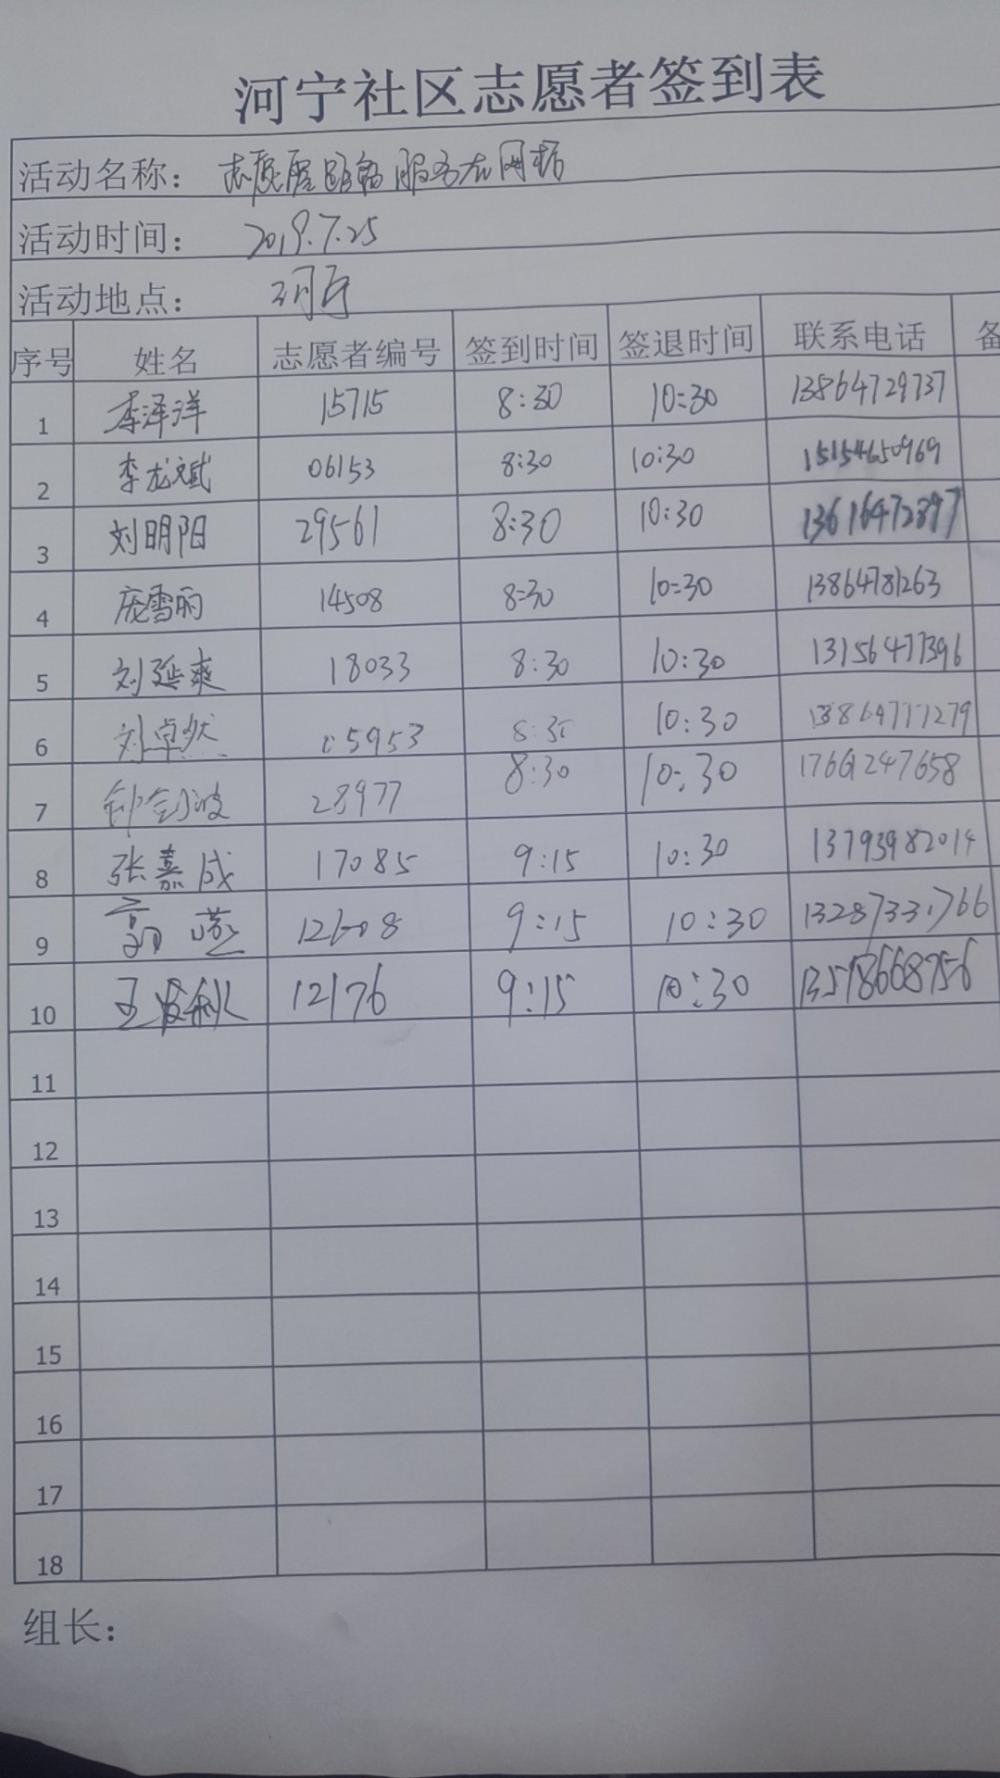 河宁社区志愿者签到表
活动名称： 志愿 服务在网格
活动时间： 2019.7.25
活动地点： 河宁
序号 姓名 志愿者编号 签到时间 签退时间 联系电话 备
1 李泽洋 15715 8:30 10:30 13864729737
2 李龙斌 06153 8:30 10:30 15154650969
3 刘明阳 29561 8:30 10:30 13616472897
4 庞雪丽 14508 8:30 10:30 13864781263
5 刘延爽 18033 8:30 10:30 13156477396
6 刘卓然 05953 8:30 10:30 13864777279
7 28977 8:30 10:30 17661247658
8 张嘉成 17085 9:15 10:30 13793982014
9 郭燕 12608 9:15 10:30 13287331766
10 12176 9:15 10:30 13518668756
11
12
13
14
15
16
17
18
组长：